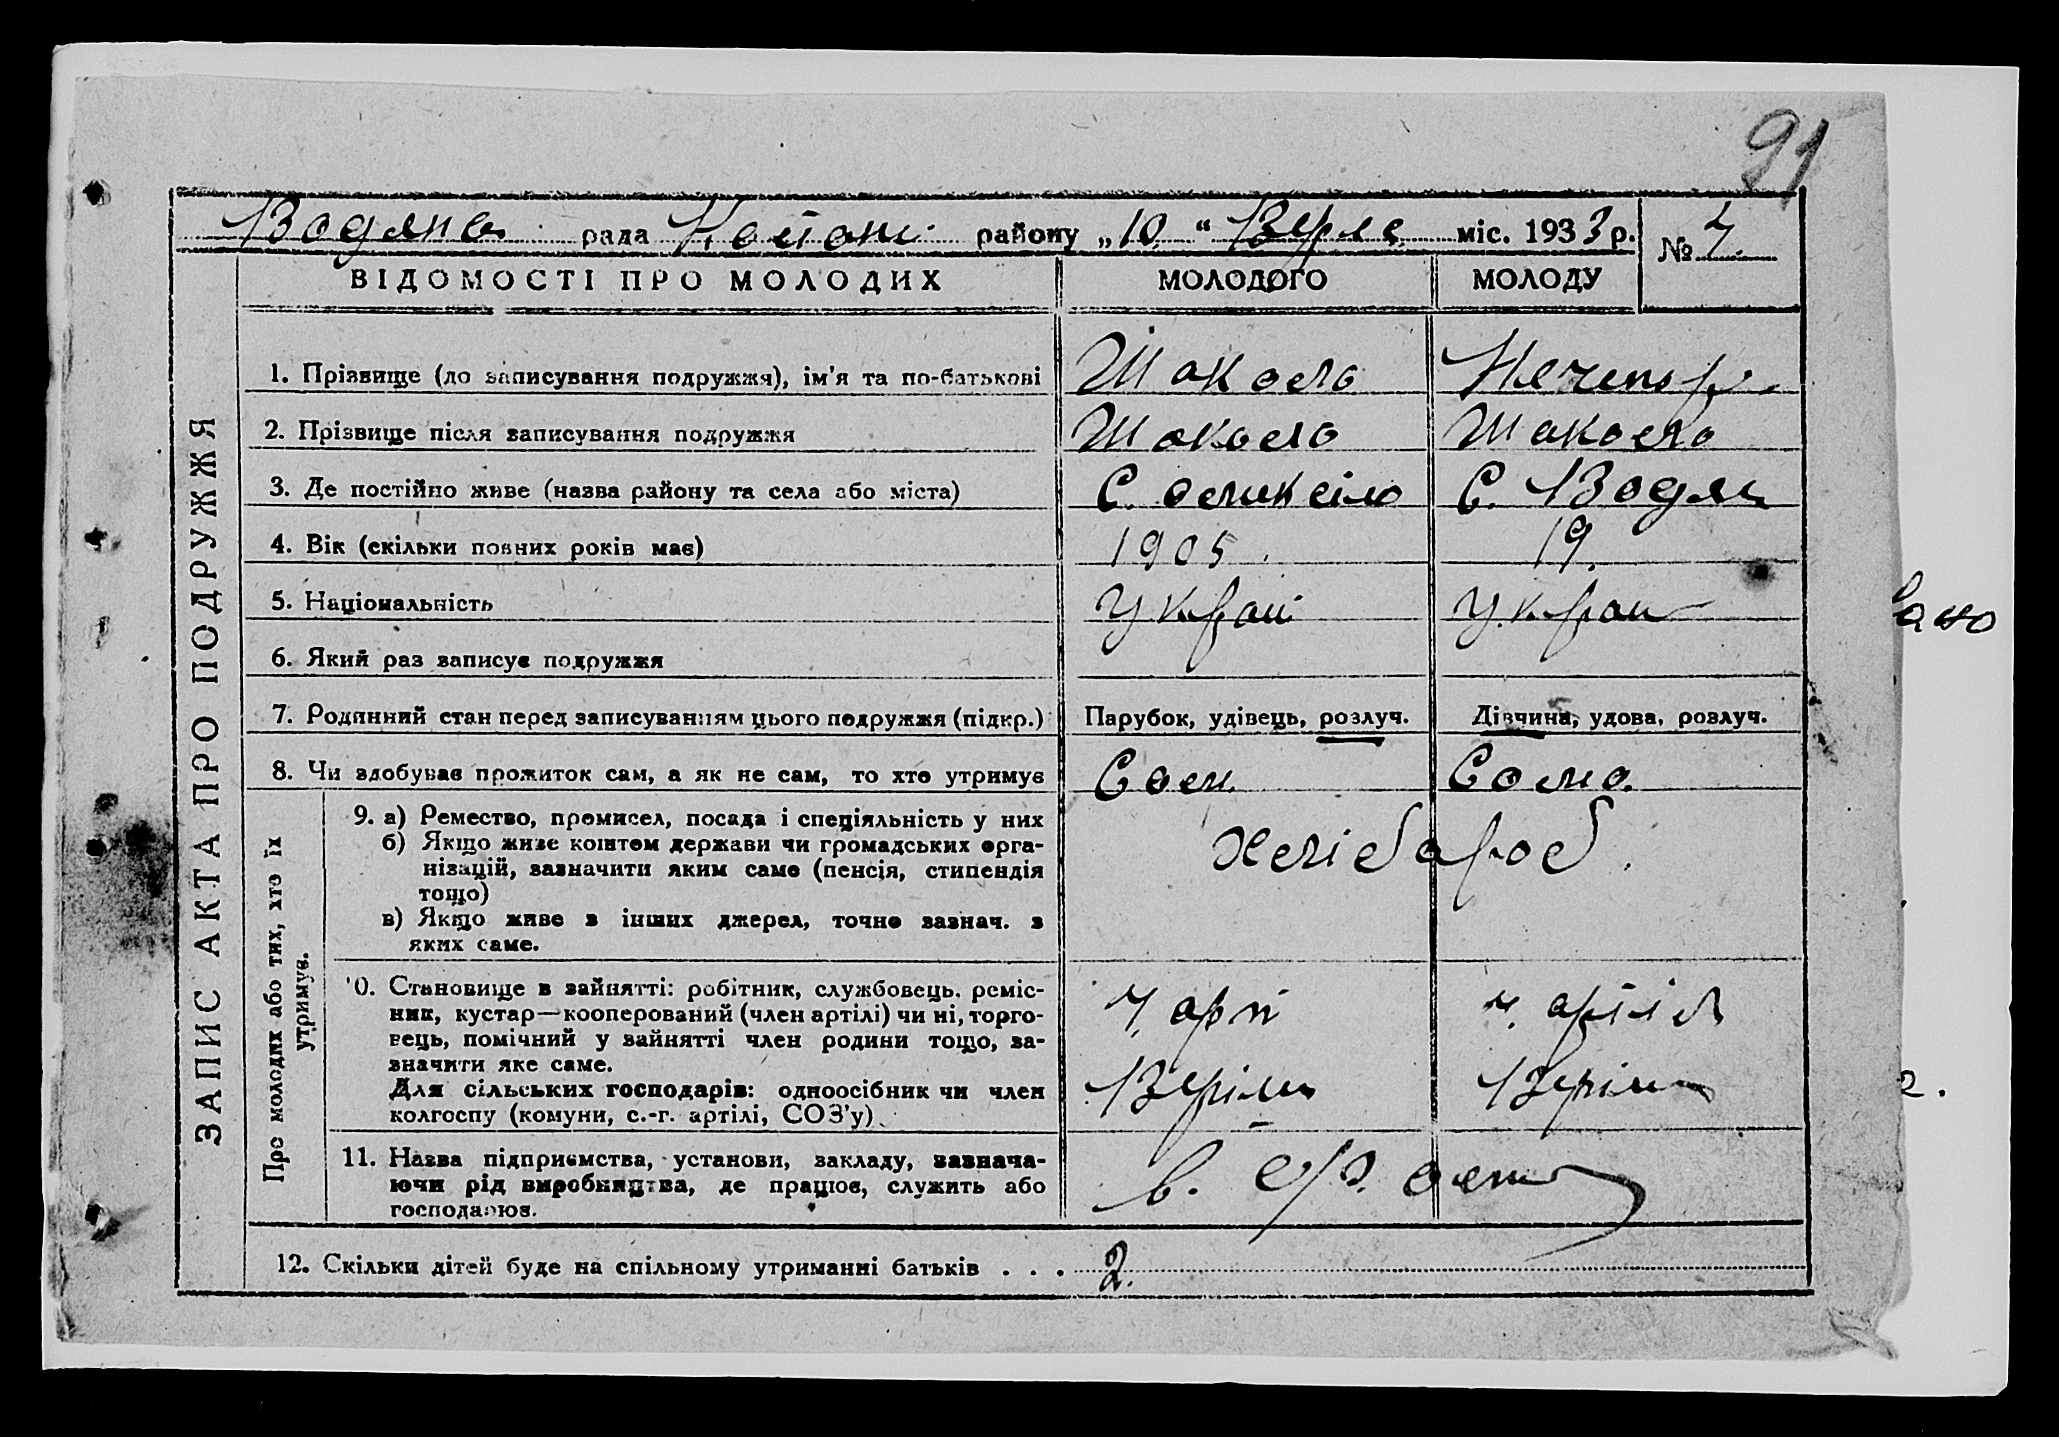 91
Водяна рада района району „10“ міс. 1933 р. № 7.
ВІДОМОСТІ ПРО МОЛОДИХ МОЛОДОГО МОЛОДУ
ЗАПИС АКТА ПРО ПОДРУЖЖЯ
1. Прізвище (до записування подружжя), ім'я та по-батькові Шакало Нечипор
2. Прізвище після записування подружжя Шакало Шакало
3. Де постійно живе (назва району та села або міста) С. С. Водян
4. Вік (скільки повних років має) 1905. 19.
5. Національність Украї Украи
6. Який раз записує подружжя
7. Родинний стан перед записуванням цього подружжя (підкр.) Парубок, удівець, розлуч. Дівчина, удова, розлуч.
8. Чи здобував прожиток сам, а як не сам, то хто утримує Сам. Сама.
Про молодих або тих, хто їх
утримує.
9. а) Ремество, промисел, посада і спеціяльність у них
б) Якщо живе коштом держави чи громадських орга-
нізацій, зазначити яким саме (пенсія, стипендія
тощо)
в) Якщо живе з інших джерел, точно зазнач. з
яких саме.
хлібароб.
10. Становище в зайнятті: робітник, службовець, реміс-
ник, кустар—кооперований (член артілі) чи ні, торго-
вець, помічний у зайнятті член родини тощо, за-
значити яке саме.
Для сільських господарів: одноосібник чи член
колгоспу (комуни, с.-г. артілі, СОЗ'у).
ч. арті ч. артілі
11. Назва підприємства, установи, закладу, зазнача-
ючи рід виробництва, де працює, служить або
господарює.
12. Скільки дітей буде на спільному утриманні батьків . . . 2.